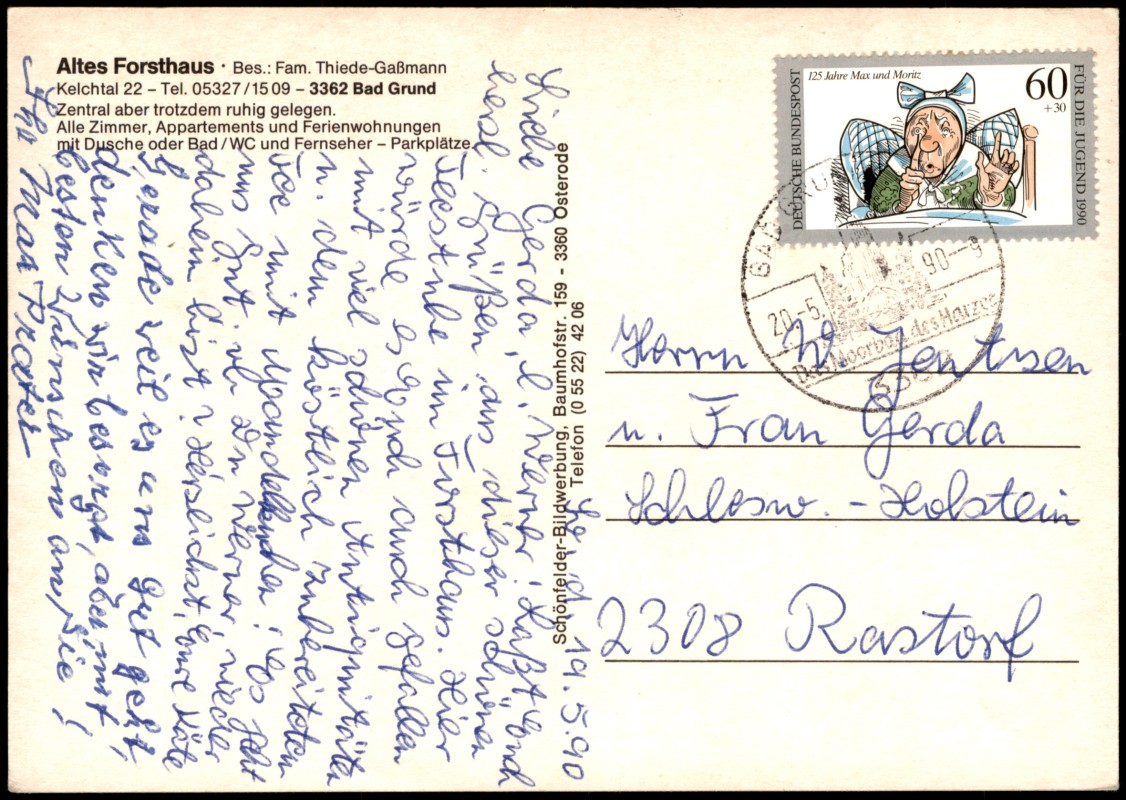 Altes Forsthaus · Bes.: Fam. Thiede-Gaßmann
Kelchtal 22 – Tel. 05327/15 09 – 3362 Bad Grund
Zentral aber trotzdem ruhig gelegen.
Alle Zimmer, Appartements und Ferienwohnungen
mit Dusche oder Bad/WC und Fernseher – Parkplätze.
125 Jahre Max und Moritz
60
+30
DEUTSCHE BUNDESPOST
FÜR DIE JUGEND 1990
BAD GRUND
20.-5.90--9
Das Moorbad des Harzes
Schönfelder-Bildwerbung, Baumhofstr. 159 - 3360 Osterode
Telefon (0 55 22) 42 06
d. 19.5.90
Liebe Gerda, l. Werner! Laßt Euch
herzl. grüßen aus dieser schönen
Teestube im Forsthaus. Hier
würde es Euch auch gefallen
mit viel schönen Antiquitäten
u. dem köstlich zubereiteten
Tee mit
uns gut. ob Du Werner wieder
daheim bist? Herzlichst, Eure Käte
Gerade weil es uns gut geht,
denken wir besorgt, aber mit
besten Wünschen an Sie!
Ihr Max Prater
Herrn W. Jentsen
u. Frau Gerda
Schlesw.-Holstein
2308 Rastorf